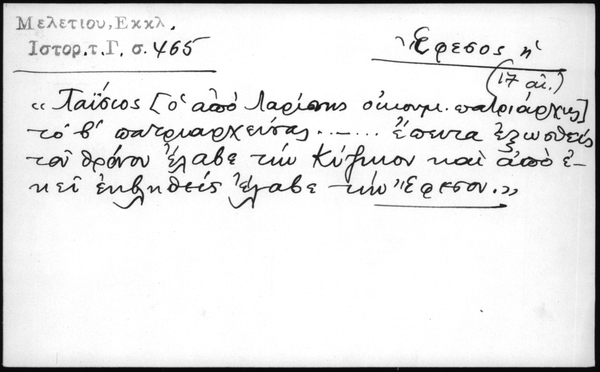 Μελετίου, Εκκλ.
Ιστορ.τ.Γ. σ. 465
Ἔφεσος ἡ
(17 αἰ.)
«Παΐσιος [ὁ ἀπό Λαρίσης οἰκουμ. πατριάρχης]
τό β' πατριαρχεύσας...... ἔπειτα ἐξωσθείς
τοῦ θρόνου ἔλαβε τήν Κύζικον καὶ ἀπὸ ἐ-
κεῖ ἐκβληθείς ἔλαβε τήν Ἔφεσον.»